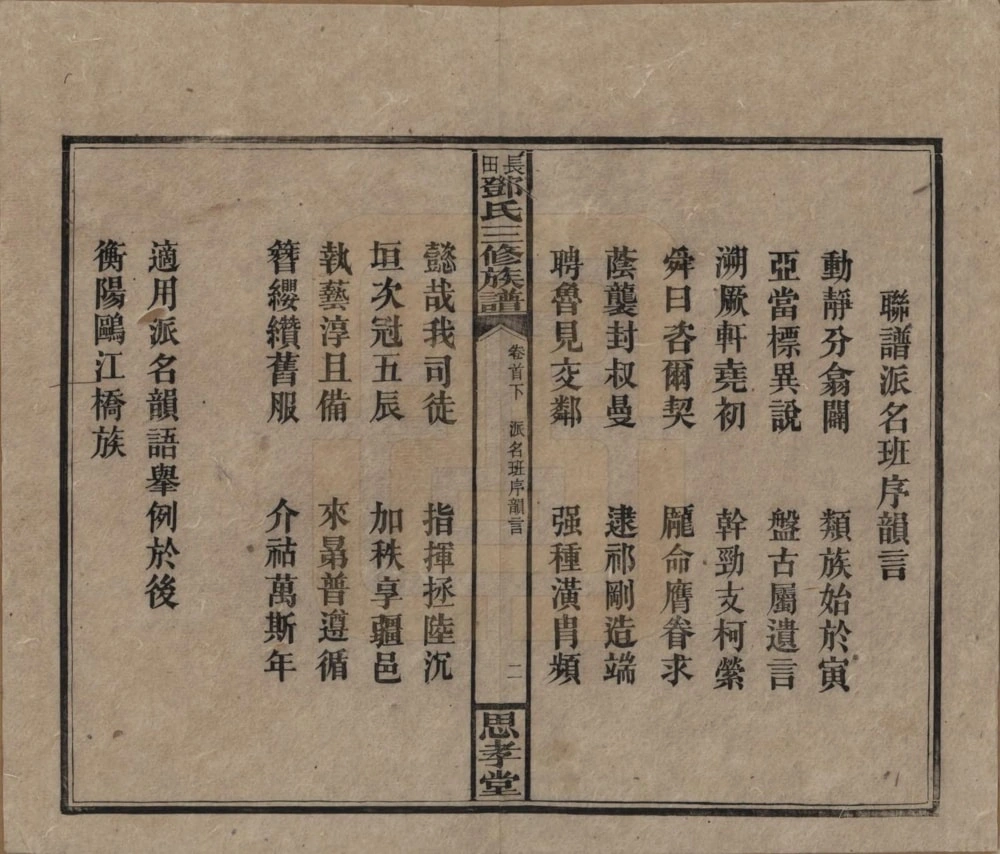 聯譜派名班序韻言
動靜分翕闢 類族始於寅
亞當標異說 盤古屬遺言
溯厥軒堯初 幹勁支柯縈
舜曰咨爾契 龐命膺眷求
蔭襲封叔曼 逮祁剛造端
聘魯見交鄰 强種潢冑頻
長田鄧氏三修族譜
卷首下 派名班序韻言 二
思孝堂
懿哉我司徒 指揮拯陸沉
垣次冠五辰 加秩享疆邑
執藝淳且備 來昴普遵循
簪纓纘舊服 介祜萬斯年
適用派名韻語舉例於後
衡陽鷗江橋族